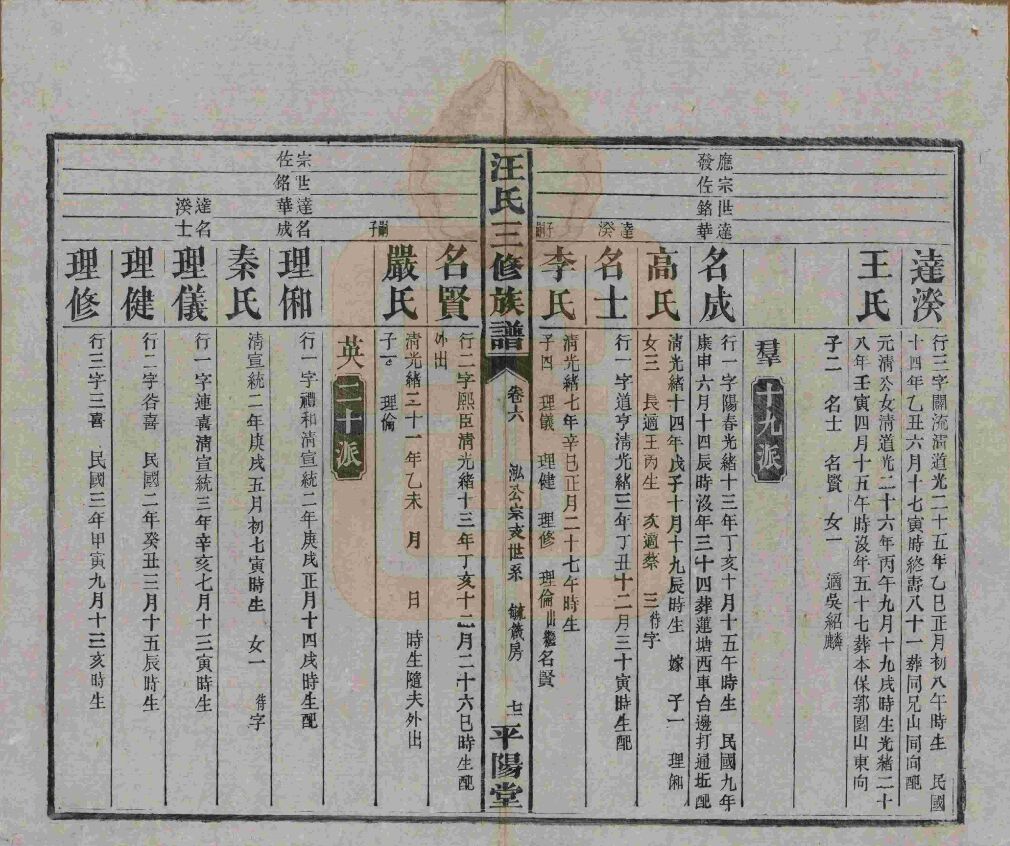 達湀
行三字關流清道光二十五年乙巳正月初八午時生　民國
十四年乙丑六月十七寅時終壽八十一葬同兄山同向配
王氏
元清公女清道光二十六年丙午九月十九戌時生光緒二十
八年壬寅四月十五午時沒年五十七葬本保郭園山東向
子二　名士　名賢　女一　適吳紹麟
羣十九派
應宗世達
發佐銘華
名成
行一字陽春光緒十三年丁亥十月十五午時生　民國九年
庚申六月十四辰時沒年三十四葬蓮塘西車台邊打通坵配
高氏
清光緒十四年戊子十月十九辰時生　嫁　子一　理㑂
女三　長適王丙生　次適蔡　三待字
達
湀
名士
行一字道亨清光緒三年丁丑十二月三十寅時生配
子嗣
李氏
清光緒七年辛巳正月二十七午時生
子四　理儀　理健　理修　理倫出繼名賢
汪氏三修族譜
卷六　泓公宗支世系　毓儀房　七二　平陽堂
名賢
行二字熙臣清光緒十三年丁亥十二月二十六巳時生配
外出
嗣子
嚴氏
清光緒三十一年乙未　月　日　時生隨夫外出
子一　理倫
英二十派
宗世達名
佐銘華成
理㑂
行一字禮和清宣統二年庚戌正月十四戌時生配
秦氏
清宣統二年庚戌五月初七寅時生　女一　待字
達名
湀士
理儀
行一字連喜清宣統三年辛亥七月十三寅時生
理健
行二字谷喜　民國二年癸丑三月十五辰時生
理修
行三字三喜　民國三年甲寅九月十三亥時生